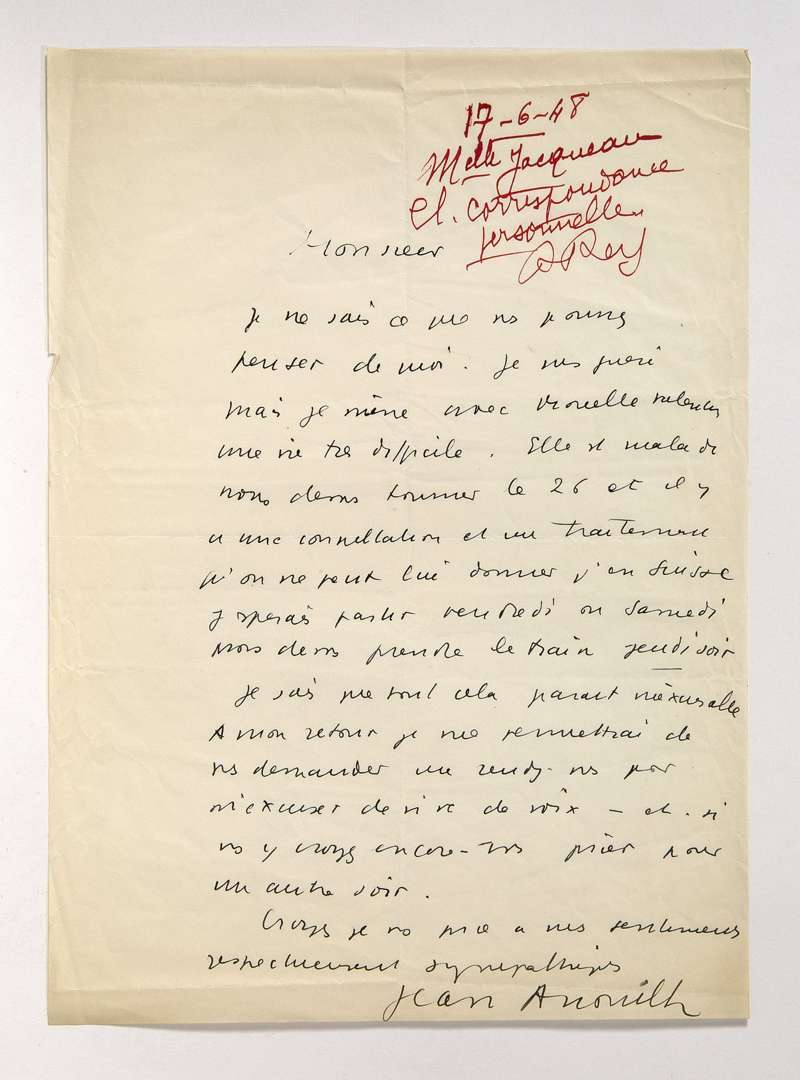 17-6-48
Melle Jacqueau
cl. correspondance
personnelle.
Monsieur
Je ne sais ce que vs pouvez
penser de moi. Je vs
mais je mène avec Monelle Valentin
une vie très difficile. Elle st malade
nous devons tourner le 26 et il y
a une consultation et un traitement
qu'on ne peut lui donner qu'en Suisse
J'espérais partir vendredi ou Samedi
Nous devons prendre le train jeudi soir
Je sais que tout cela parait inexcusable
A mon retour je me permettrai de
vs demander un rendez-vs pour
m'excuser de vive de voix – et. si
vs y croyez encore – vs prier pour
un autre soir.
Croyez je vs prie a mes sentiments
respectueusement sympathiques
Jean Anouilh